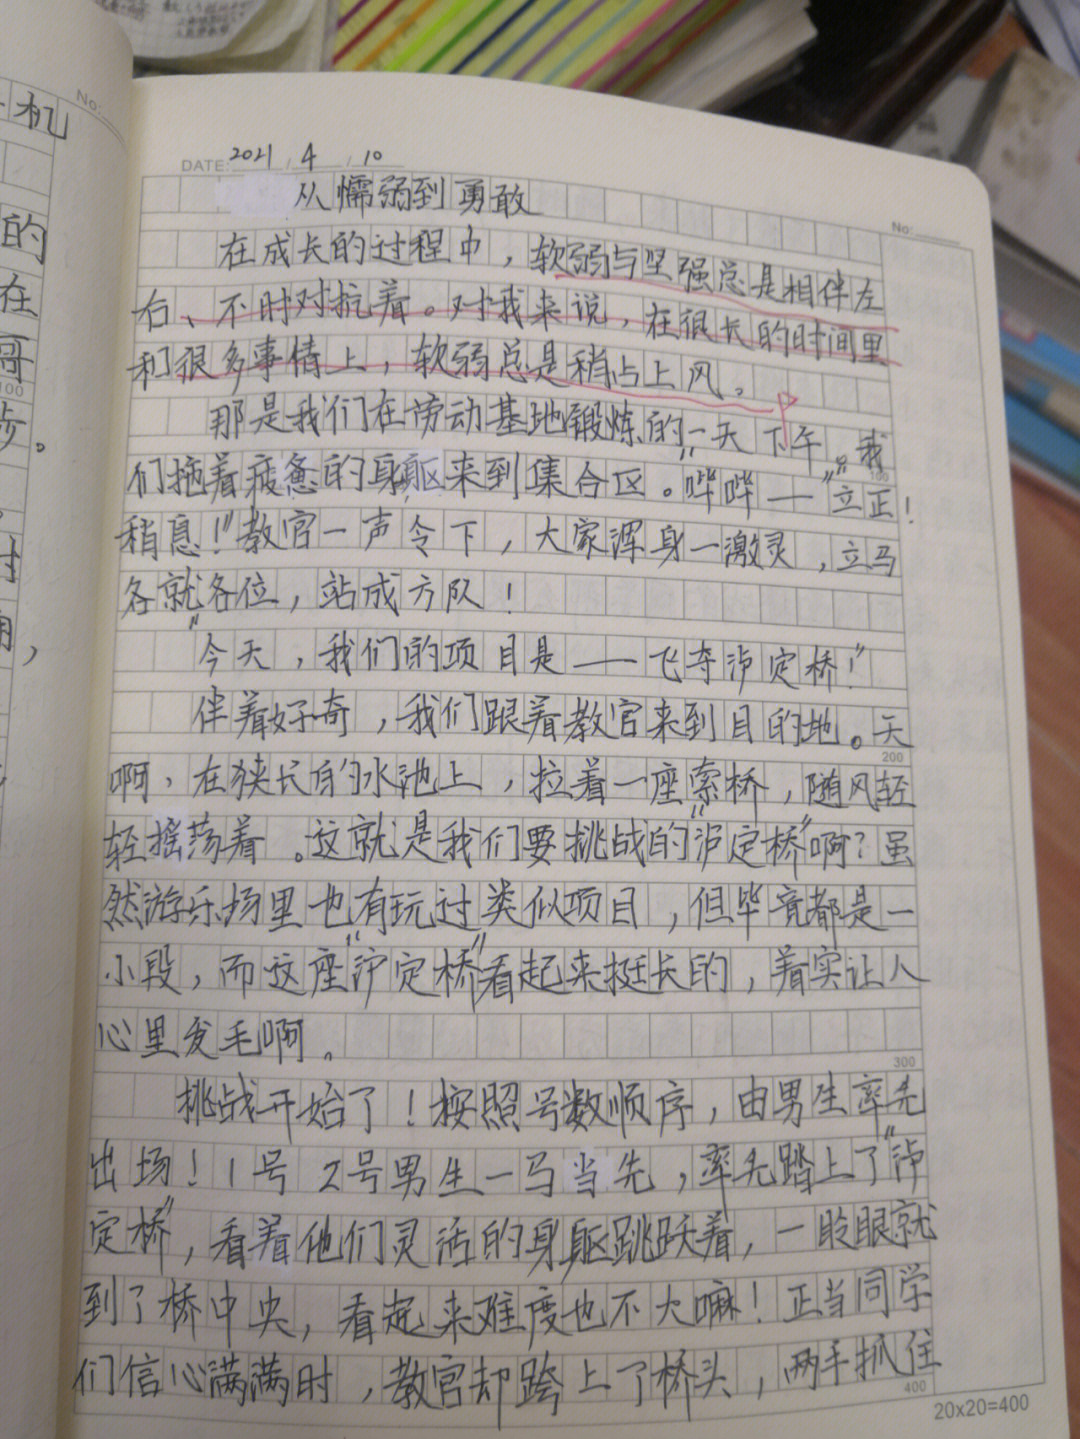 机
No:
的
在
哥
100
步。
DATE: 2021 / 4 / 10
No:
从懦弱到勇敢
在成长的过程中，软弱与坚强总是相伴左
右、不时对抗着。对我来说，在很长的时间里
和很多事情上，软弱总是稍占上风。
那是我们在劳动基地锻炼的一天下午。我
100
们拖着疲惫的身躯来到集合区。哔哔——“立正！
稍息！”教官一声令下，大家浑身一激灵，立马
各就各位，站成方队！
“今天，我们的项目是——飞夺泸定桥！”
伴着好奇，我们跟着教官来到目的地。天
200
啊，在狭长的水池上，拉着一座索桥，随风轻
轻摇荡着。这就是我们要挑战的“泸定桥”啊？虽
然游乐场里也有玩过类似项目，但毕竟都是一
小段，而这座“泸定桥”看起来挺长的，着实让人
心里发毛啊。
300
挑战开始了！按照号数顺序，由男生率先
出场！1号2号男生一马当先，率先踏上了“泸
定桥”，看着他们灵活的身躯跳跃着，一眨眼就
到了桥中央，看起来难度也不大嘛！正当同学
们信心满满时，教官却跨上了桥头，两手抓住
400
20x20=400